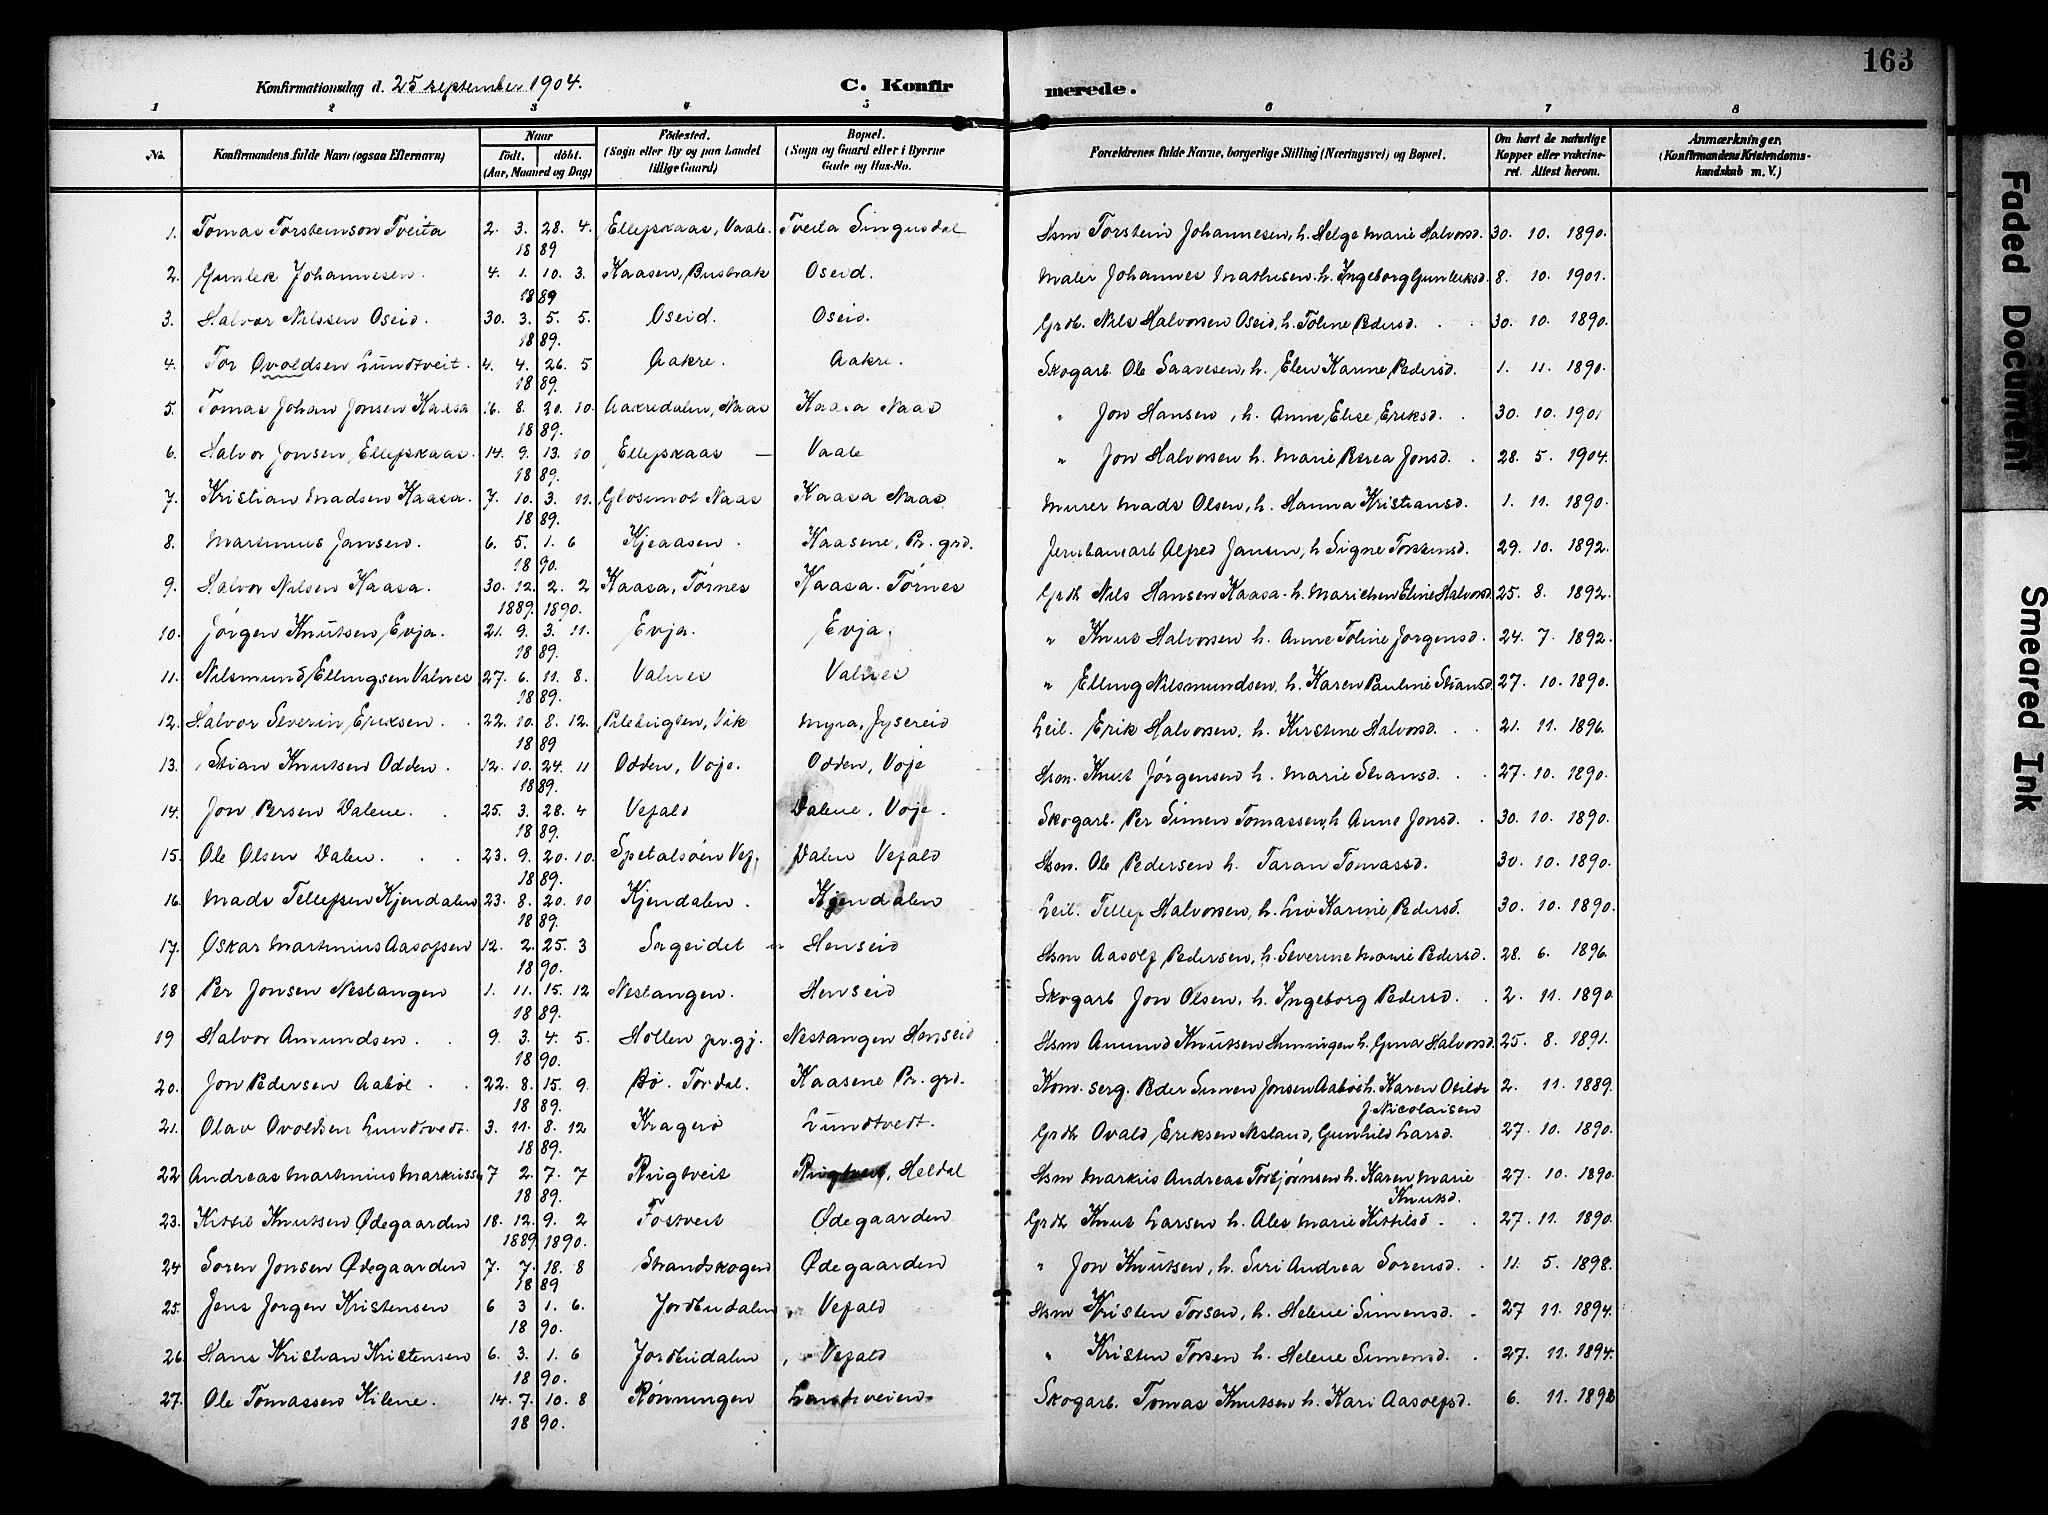 163
Konfirmationsdag d. 25 september 1904. C. Konfirmerede.
1 2 3 4 5 6 7 8
No. Konfirmandens fulde Navn (ogsaa Efternavn) Naar født, døbt. (Aar, Maaned og Dag) Fødested. (Sogn eller By og paa Landet tillige Gaard) Bopæl. (Sogn og Gaard eller i Byerne Gade og Hus-No. Forældrenes fulde Navne, borgerlige Stilling (Næringsvei) og Bopæl. Om havt de naturlige Kopper eller vakcineret. Attest herom. Anmærkninger. (Konfirmandens Kristendomskundskab m. V.)
1. Tomas Torsteinson Tveita 2. 3. 28. 4. Ellefskaas, Vaale. Tveita Singusdal Hsm Torstein Johannesen, h. Helge Marie Halvorsd. 30. 10. 1890.
1889
2. Gunlek Johannesen. 4. 1. 10. 3. Kaasen, Bustrak Oseid. Maler Johannes Mathisen h. Ingeborg Gunleksd. 8. 10. 1901.
1889
3. Halvor Nilssen Oseid. 30. 3. 5. 5. Oseid. Oseid. Grdb. Nils Halvorsen Oseid, h. Toline Pedersd. 30. 10. 1890.
1889.
4. Tor Ovoldsen Lundtveit. 4. 4. 26. 5 Aakre. Aakre. Skogarb. Ole Saavesen, h. Elen Karine Pedersd. 1. 11. 1890.
1889.
5. Tomas Johan Jonsen Kaasa 16. 8. 20. 10. Aakredalen, Naas Kaasa Naas " Jon Hansen, h. Anne Elise Eriksd. 30. 10. 1901
1889.
6. Halvor Jonsen Ellefskaas. 14. 9. 13. 10 Ellefskaas — Vaale " Jon Halvorsen h. Marie Berea Jonsd. 28. 5. 1904.
1889.
7. Kristian Madsen Kaasa. 7. 10. 3. 11. Glosimot Naas Kaasa Naas Murer Mads Olsen, h. Hanna Kristiansd. 1. 11. 1890.
1889.
8. Martinius Jansen. 6. 5. 1. 6 Kjeaasen. Kaasene, Pr. grd. Jernbanearb Alfred Jansen, h Signe Torsteinsd. 29. 10. 1892.
1890.
9. Halvor Nilsen Kaasa. 30. 12. 2. 2 Kaasa, Tørnes Kaasa. Tørnes Grdb Nils Hansen Kaasa. h. Marichen Eline Halvorsd 25. 8. 1892.
1889. 1890.
10. Jørgen Knutsen Evja. 21. 9. 3. 11. Evja. Evja. " Knut Halvorsen h. Anne Toline Jorgensd. 24. 7. 1892.
1889.
11. Nilsmund Ellingsen Valnes 27. 6. 11. 8. Valnes Valnes " Elling Nilsmundsen, h. Karen Pauline Stiansd 27. 10. 1890.
1889.
12. Halvor Severin Eriksen. 22. 10. 8. 12. Pilebugten, Vik Myra, Jysereid Leil. Erik Halvorsen, h. Kirstine Halvorsd. 21. 11. 1896.
1889
13. Stian Knutsen Odden. 12. 10. 24. 11 Odden, Voje. Odden, Voje Hsm. Knut Jørgensen h. Marie Stiansd. 27. 10. 1890.
1889.
14. Jon Persen Dalene. 25. 3. 28. 4 Vefald Dalene, Voje. Skogarb. Per Simen Tomassen, h Anne Jonsd. 30. 10. 1890.
1889.
15. Ole Olsen Dalen. 23. 9. 20. 10. Spetalsøen Vef. Dalen Vefald Hsm. Ole Pedersen h. Taran Tomassd. 30. 10. 1890.
1889.
16. Mads Tellefsen Kjendalen 23. 8. 20. 10 Kjendalen. Kjendalen Leil. Tellef Halvorsen, h. Liv Karine Pedersd. 30. 10. 1890.
1889.
17. Oskar Martinius Aasolfsen 12. 2. 25. 3 Sageidet Henseid Hsm Aasolf Pedersen, h. Severine Marie Pedersd. 28. 6. 1896.
1890.
18 Per Jonsen Nestangen 1. 11. 15. 12 Nestangen. Henseid Skogarb Jon Olsen, h. Ingeborg Pedersd. 2. 11. 1890
1889.
19 Halvor Amundsen. 9. 3. 4. 5. Hollen pr.gj. Nestangen Henseid Hsm Amund Knutsen Henningen h. Gina Halvorsd. 25. 8. 1891.
1890.
20. Jon Pedersen Aabøe. 22. 8. 15. 9. Bø. Tordal. Kaasene Pr. grd. Kom. serg. Peder Simen Jonsen Aabøe h. Karen Otilde 2. 11. 1889.
1889. J. Nicolaisen
21. Olav Ovoldsen Lundtvedt. 3. 11. 8. 12 Kragerø Lundtvedt. Grdb Ovald Eriksen Nesland, Gunhild Larsd. 27. 10. 1890.
1889.
22 Andreas Martinius Markussen 7 2. 7. 7 Rugtveit Rugtveit, Heldal Hsm Markus Andreas Torbjørnsen h. Karen Marie 27. 10. 1890.
1889. Knutsd.
23. Kittil Knutsen Ødegaarden 18. 12. 9. 2 Tostveit Ødegaarden Grdb Knut Larsen h. Ales Marie Kittilsd. 27. 11. 1890.
1889. 1890.
24 Soren Jonsen Ødegaarden 7. 7. 18. 8 Strandskogen Ødegaarden " Jon Knutsen, h. Siri Andrea Sorensd. 11. 5. 1898.
1889
25. Jens Jorgen Kristensen 6 3 1. 6. Jordbudalen Vefald Hsm Kristen Torsen, h. Helene Simensd. 27 11. 1894.
1890.
26. Hans Kristian Kristensen 6. 3. 1. 6 Jordbudalen Vefald " Kristen Torsen h. Helene Simensd. 27. 11. 1894.
1890.
27. Ole Tomassen Kilene. 14. 7. 10. 8 Rønningen Landeveien Skogarb. Tomas Knutsen h. Kari Aasolfsd. 6. 11. 189
1890.
Faded Document
Smeared Ink